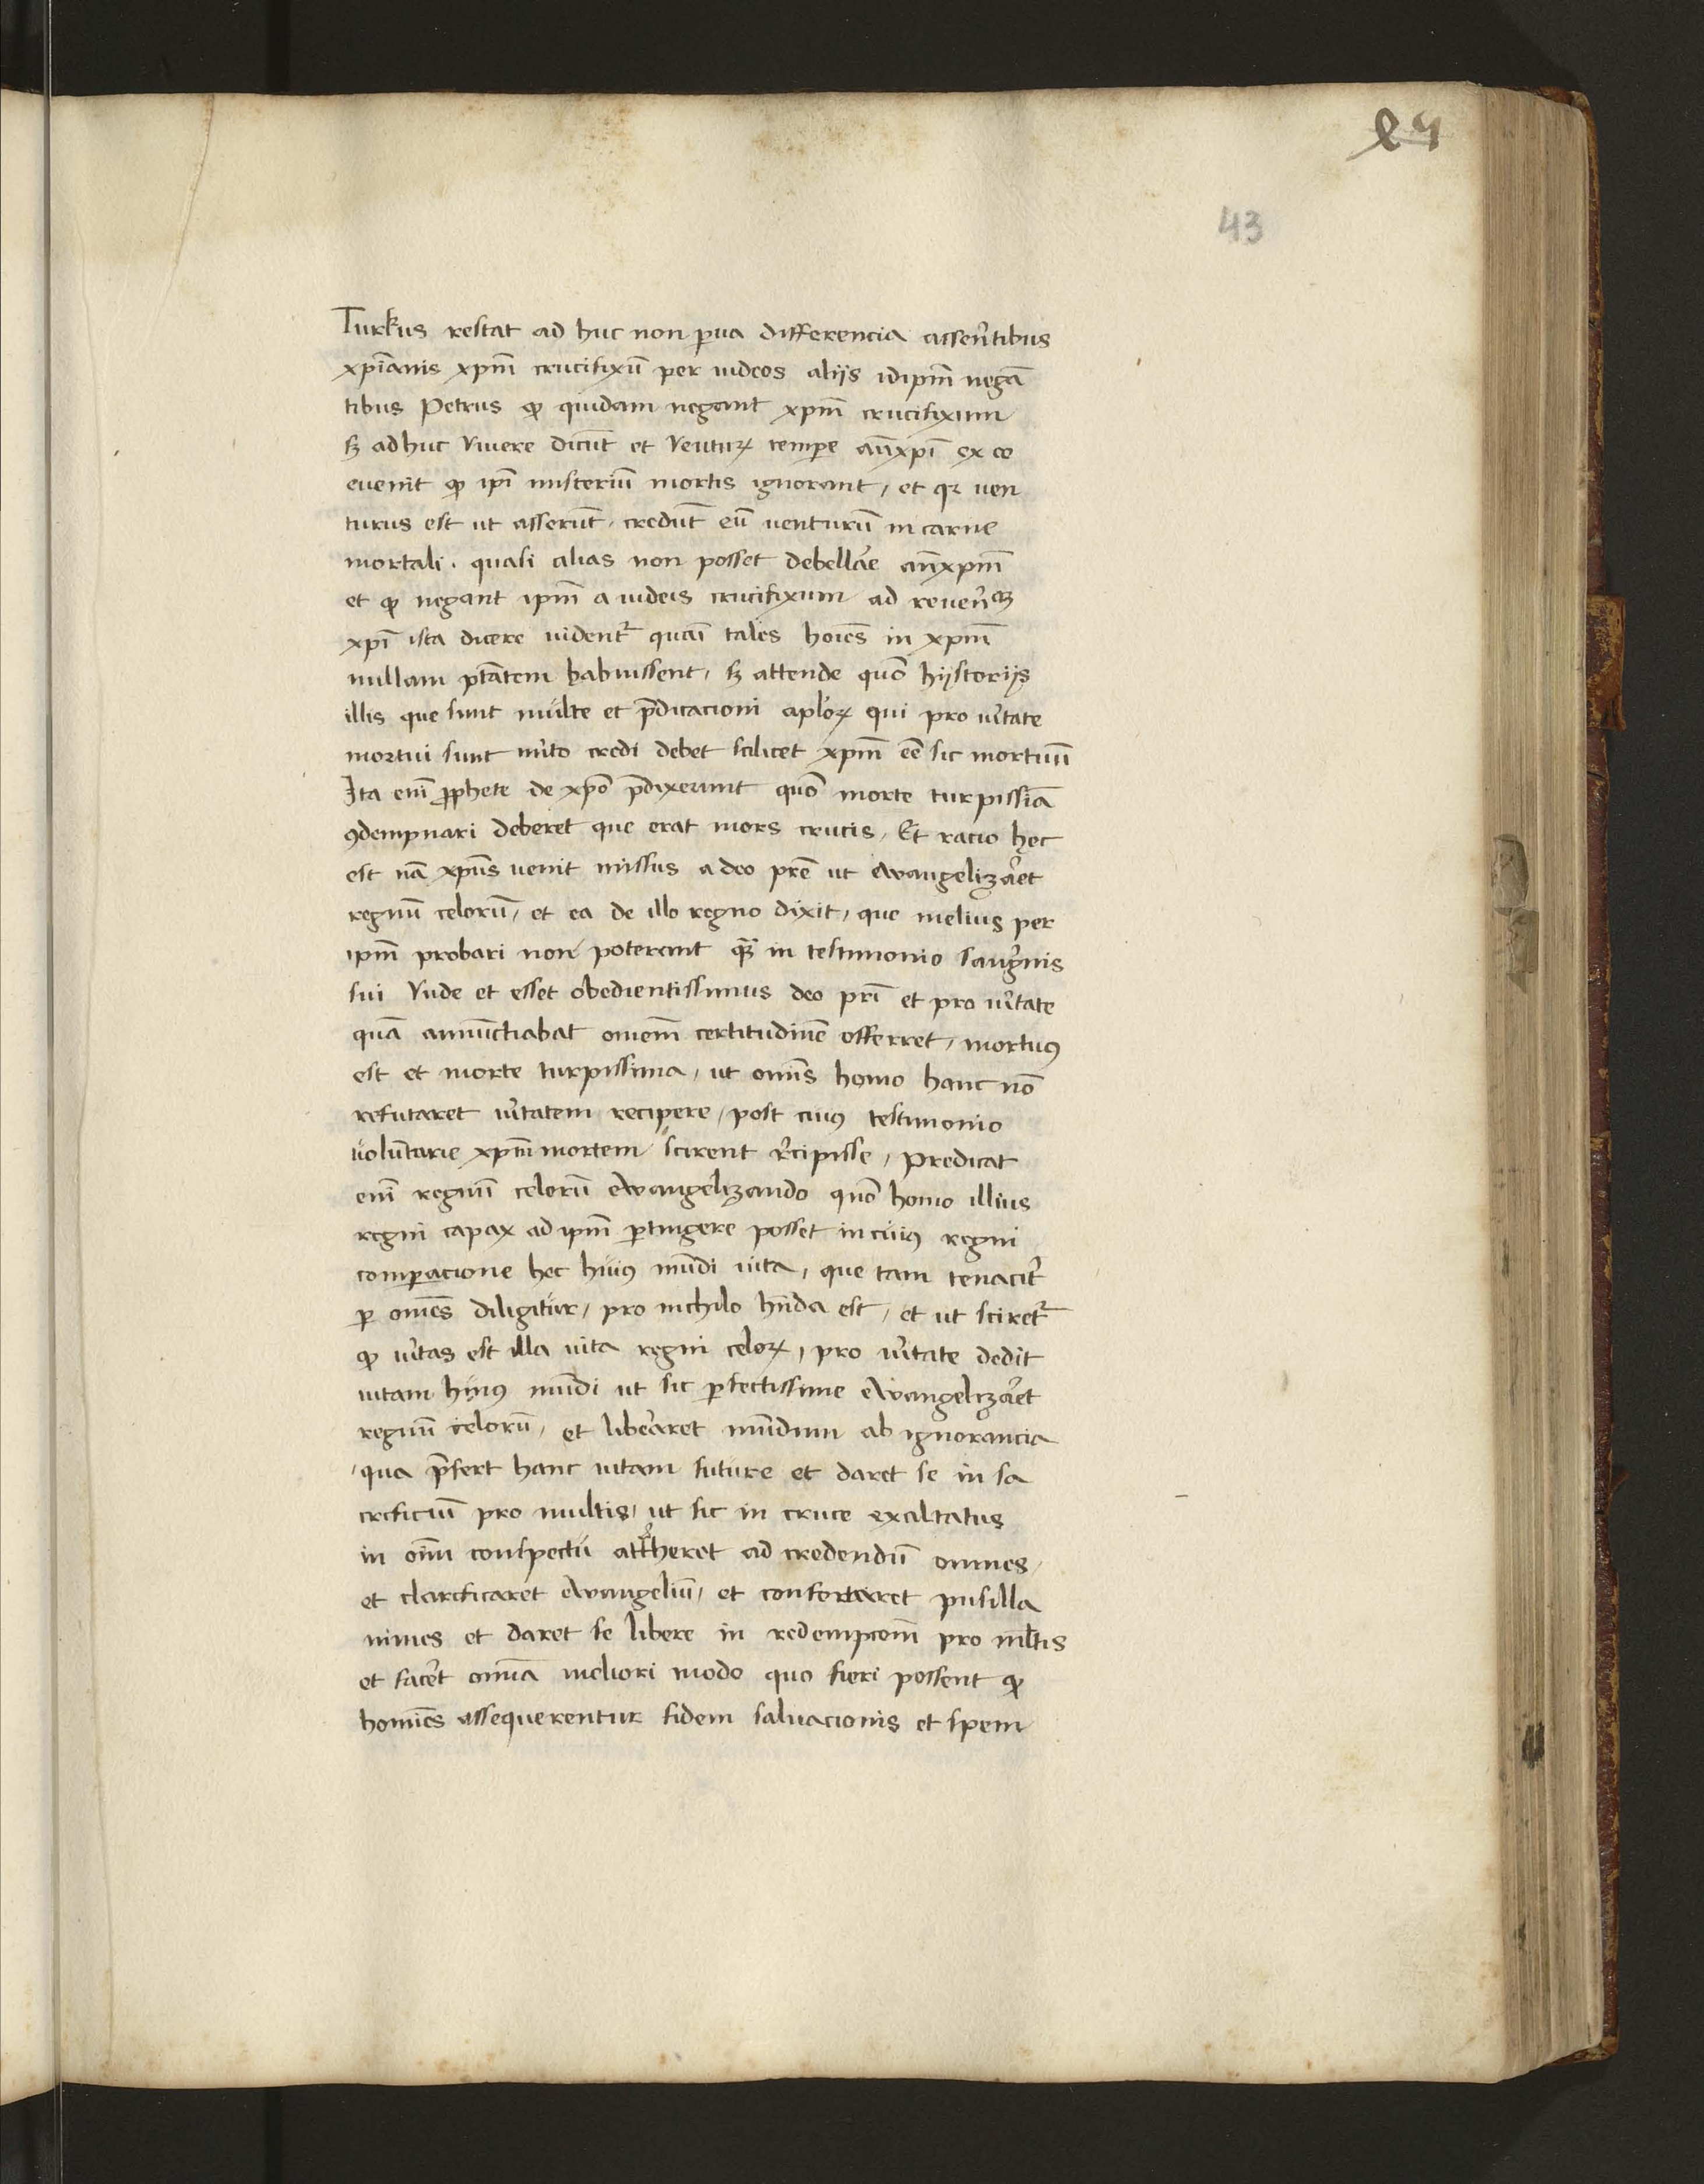 89
43
Turkus restat ad huc non p̲ua differencia asserẽtibus
xpĩanis xpm̃ crucifixũ per iudeos alijs idipm̃ negã
tibus Petrus ꝙ quidam negant xpm̃ crucifixum
sꝫ adhuc viuere dicũt et venturꝝ tempe añxpĩ ex eo
euenit ꝙ ipĩ misteriũ mortis ignorant, et qꝛ uen
turus est ut asserũt, credũt eũ uenturũ in carne
mortali. quasi alias non posset debellãe añxpm̃
et ꝙ negant ipm̃ a iudeis crucifixum ad reuerẽ
xpĩ ista dicere uident᷑ quasi tales hoĩes in xpm̃
nullam ptãtem habuissent, sꝫ attende quõ hystorijs
illis que sunt multe et p̃dicacioni aplõꝝ qui pro ũitate
mortui sunt mito credi debet scilicet xpm̃ eẽ sic mortuũ
Ita enĩ ꝓphete de xpõ p̃dixerunt quõ morte turpissiã
ꝯdempnari deberet que erat mors crucis, Et racio hec
est nã xpũs uenit missus a deo pr̃e ut ewangelizãet
regnũ celorũ, et ea de illo regno dixit, que melius per
ipm̃ probari non poterant qꝫ̃ in testimonio sangĩnis
sui Vnde et esset obedientissimus deo pr̃i et pro ũitate
quã annũctiabat omem̃ certitudinẽ offerret, mortuꝰ
est et morte turpissima, ut omĩs homo hanc nõ
refutaret ũitatem recipere, post cuiꝰ testimonio
uolũtarie xpm̃ mortem scirent r̃cipisse, Predicat
enĩ regnũ celorũ ewangelizando quõ homo illius
regni capax ad ipm̃ ꝑtingere posset in cuiꝰ regni
comꝑacione hec huiꝰ mũdi uita, que tam tenacit᷑
ꝑ omẽs diligitur, pro nichilo hñda est, et ut sciret᷑
ꝙ ũitas est illa uita regni celoꝝ, pro ũitate dedit
uitam huiꝰ mũdi ut sic ꝑfectissime ewangelizãet
regnũ celorũ, et liberaret mũdum ab ignorancia
qua p̃fert hanc uitam future et daret se in sa
crificiũ pro multis, ut sic in cruce exaltatus
in oĩm conspectu attheret ad credendũ omnes,
et clarificaret ewangeliũ, et confortaret pusilla
nimes et daret se libere in redempcoem̃ pro ml̃tis
et facẽt omĩa meliori modo quo fieri possent ꝙ
homĩes assequerentur fidem saluacionis et spem